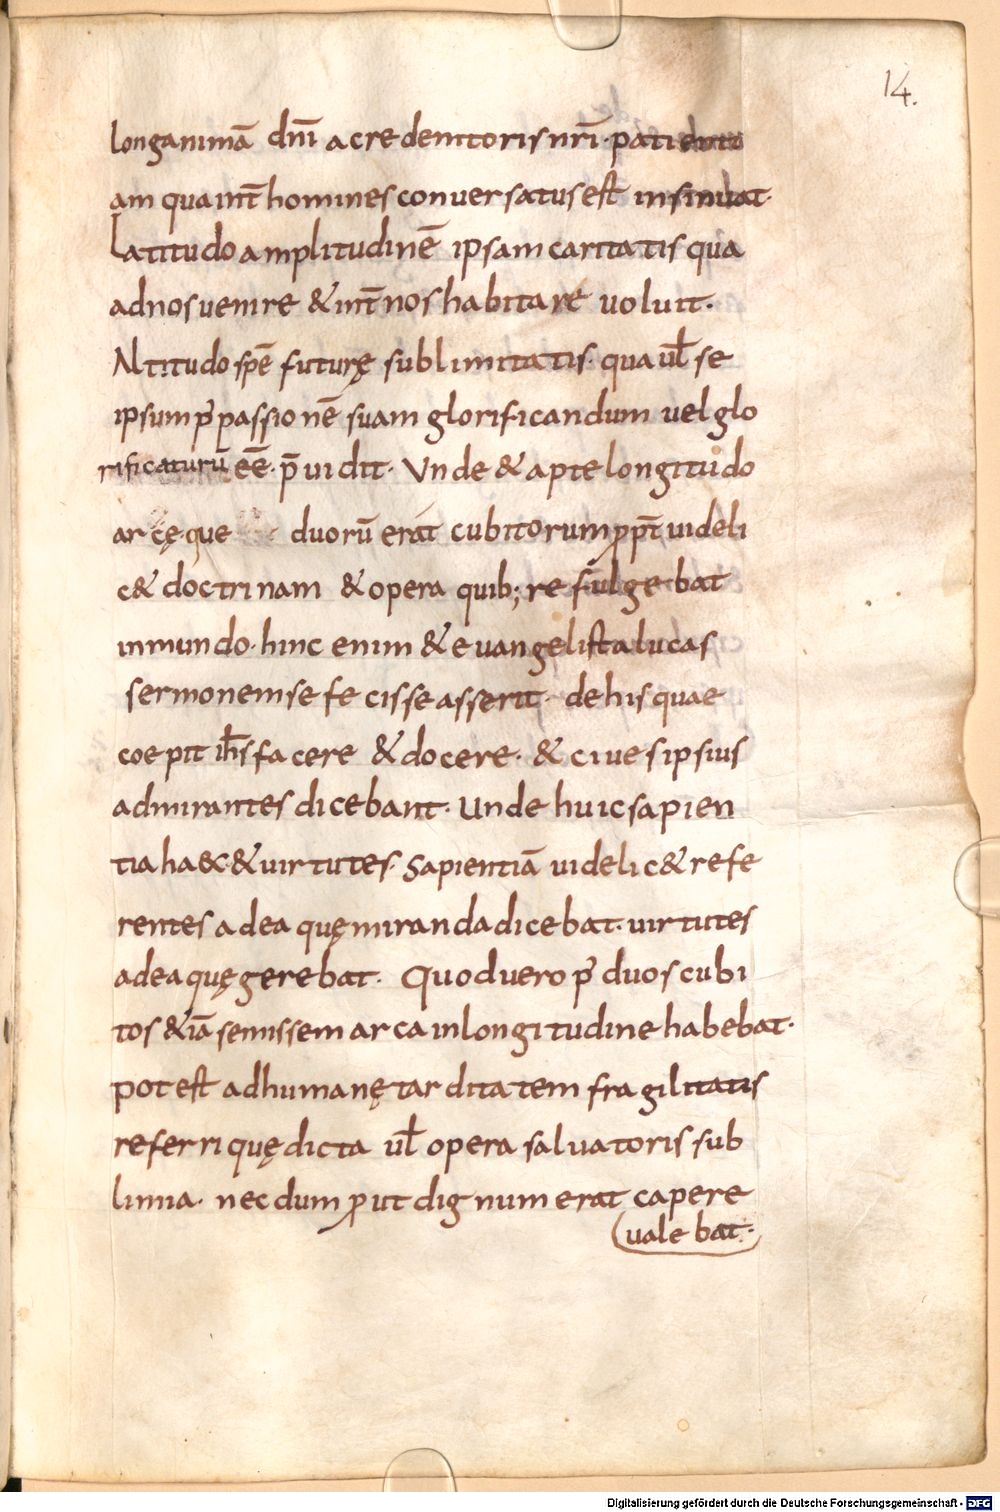 14.
longanimā dn̄i ac redemtoris nr̄i· patienti
am qua int̄ homines conuersatus est insinuat·
Latitudo amplitudinē ipsam caritatis qua
ad nos uenire & int̄ nos habitare uoluit·
Altitudo spē futurę sublimitatis· qua ul̄ se
ipsum p̄ passionē suam glorificandum uel glo
rificaturū eē· p̄uidit· Unde & apte longitudo
arcę que duorū erat cubitorum ꝓpt̄ uideli
c& doctrinam & opera quib; refulgebat
in mundo· hinc enim & euangelista lucas
sermonem se fecisse asserit· de his quae
coepit ih̄s facere & docere· & ciues ipsius
admirantes dicebant· Unde huic sapien
tia haec & uirtutes· Sapientiā uidelic& refe
rentes ad ea quę miranda dicebat· uirtutes
ad ea quę gerebat· Quod uero p̄ duos cubi
tos &iā semissem arca in longitudine habebat·
potest ad humanę tarditatem fragilitatis
referri quę dicta ul̄ opera saluatoris sub
limia· necdum ꝓut dignum erat capere
uale bat·
Digitalisierung gefördert durch die Deutsche Forschungsgemeinschaft - DFG